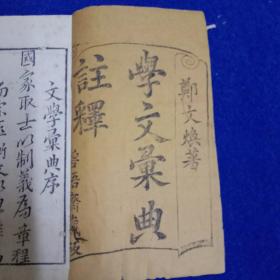 鄭文煥著
學文彙典
註釋
文學彙典序
國家取士以制義為章程